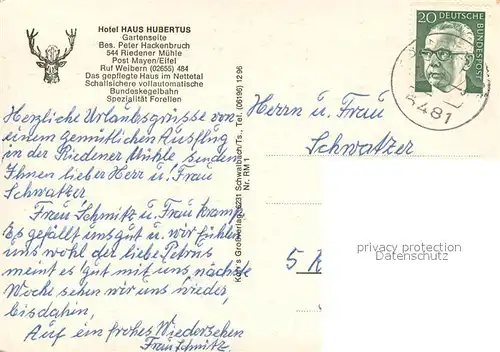 Hotel HAUS HUBERTUS
Gartenseite
Bes. Peter Hackenbruch
544 Riedener Mühle
Post Mayen/Eifel
Ruf Weibern (02655) 484
Das gepflegte Haus im Nettetal
Schallsichere vollautomatische
Bundeskegelbahn
Spezialität Forellen
Herzliche Urlaubsgrüsse von
einem gemütlichen Ausflug
in der Riedener Mühle senden
Ihnen lieber Herr u. Frau
Schwatzer
Frau Schmitz u. Frau Kramp
Es gefällt uns gut u. wir fühlen
uns wohl der liebe Petrus
meint es gut mit uns, nächste
Woche sehen wir uns wieder,
bisdahin,
Auf ein frohes Wiedersehen
Frau Schmitz.
Großverlag, 6231 Schwalbach/Ts., Tel. (06196) 12 96
Nr. RM 1
20 DEUTSCHE
BUNDESPOST
5481
Herrn u. Frau
Schwatzer
5 K
privacy protection
Datenschutz